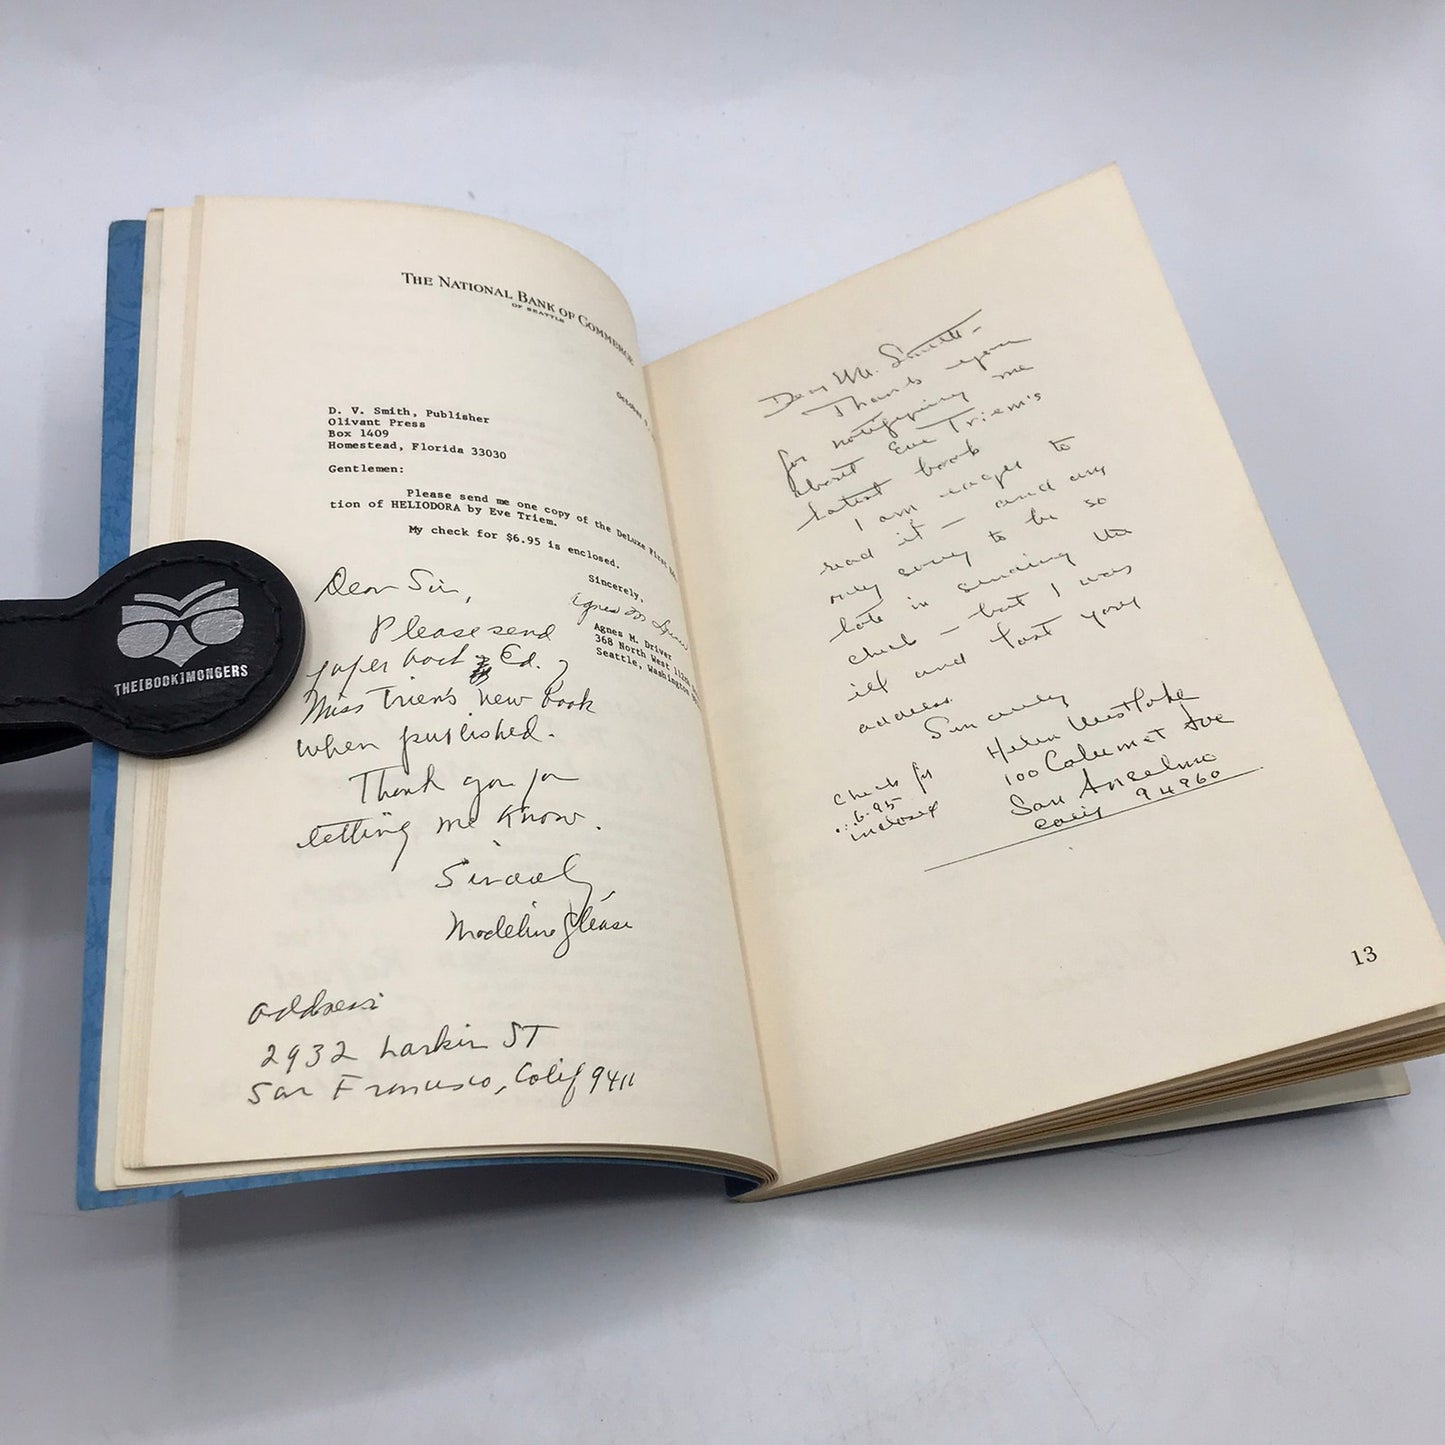 THE NATIONAL BANK OF COMMERCE
OF SEATTLE
October
D. V. Smith, Publisher
Olivant Press
Box 1409
Homestead, Florida 33030
Gentlemen:
Please send me one copy of the DeLuxe First Edi-
tion of HELIODORA by Eve Triem.
My check for $6.95 is enclosed.
Sincerely,
Agnes M. Driver
Agnes M. Driver
368 North West 112th
Seattle, Washington
Dear Sir,
Please send
paper back Ed. of
Miss Triem's new book
when published.
Thank you for
letting me know.
Sincerely,
Madeline Gleason
address
2932 Larkin ST
San Francisco, Calif 9411
THE[BOOK]MONGERS
Dear Mr. Smith -
Thank you
for notifying me
about Eve Triem's
latest book
I am eager to
read it - and am
very sorry to be so
late in sending the
check - but I was
ill and lost your
address.
Sincerely
Helen Westlake
100 Calumet Ave
San Anselmo
Calif 94960
check for
6.95
inclosed
13